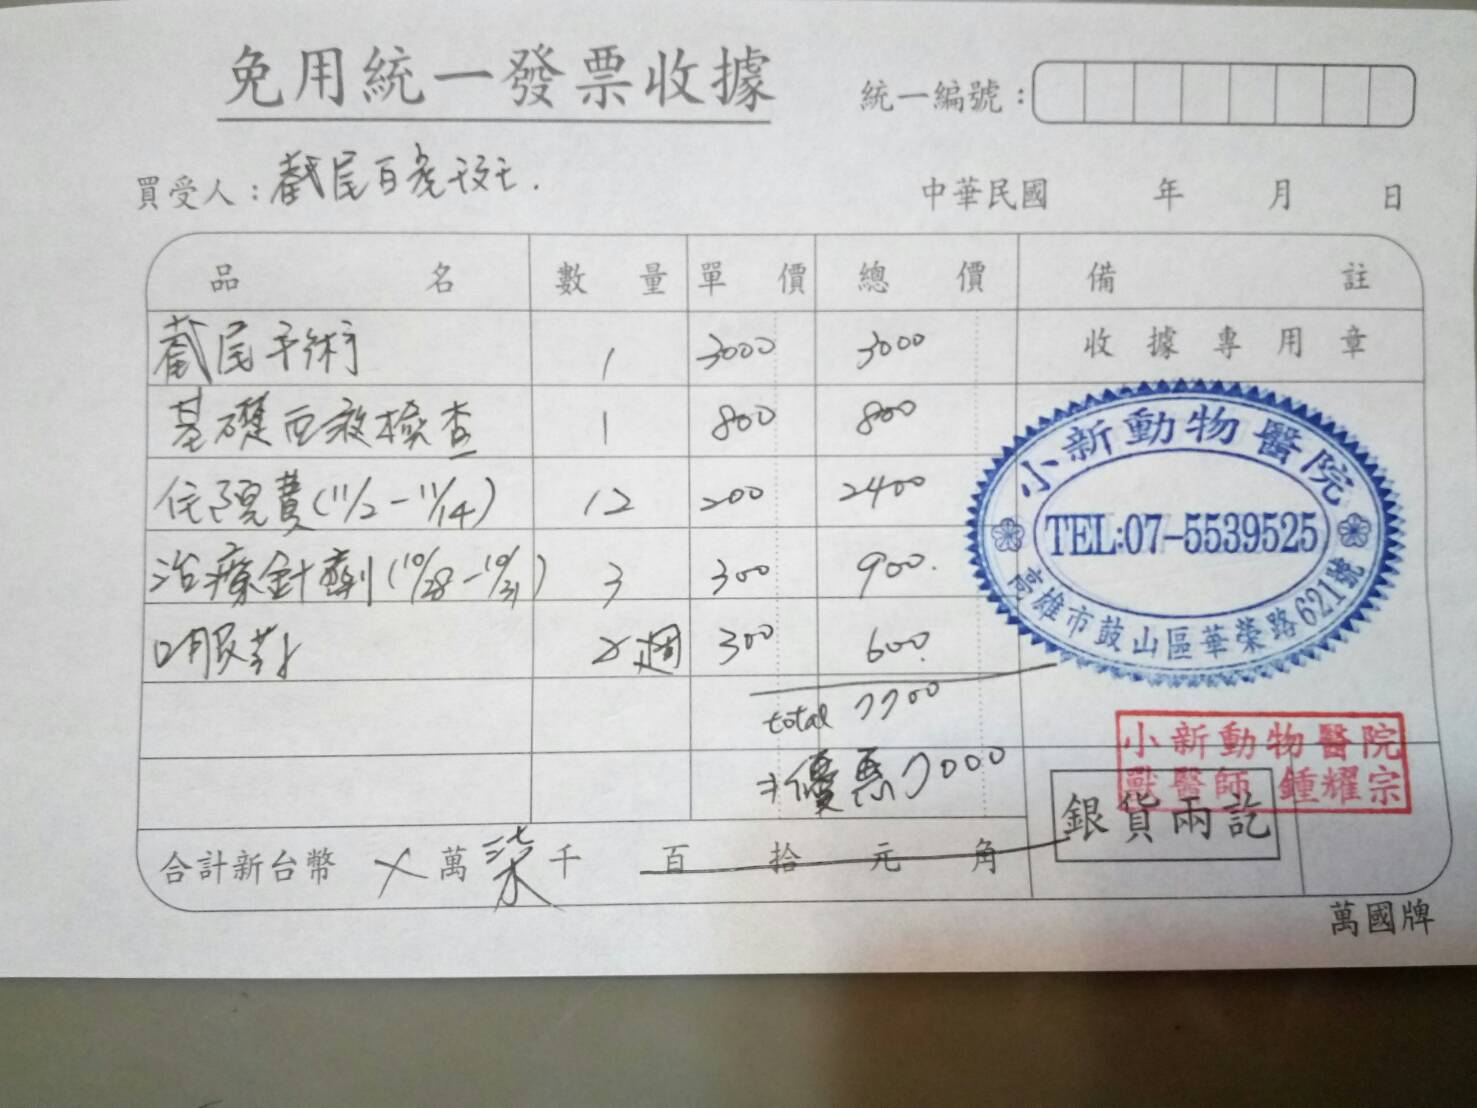 免用統一發票收據
統一編號：
買受人：截尾百
中華民國 年 月 日
品名 數量 單價 總價 備註
截尾手術 1 3000 3000 收據專用章
基礎 檢查 1 800 800
住院費(11/2-11/14) 12 200 2400
治療針劑(10/28-10/31) 3 300 900.
口服藥 2週 300 600.
total 7700
⇒優惠7000
小新動物醫院
TEL:07-5539525
高雄市鼓山區華榮路621號
小新動物醫院
獸醫師 鍾耀宗
銀貨兩訖
合計新台幣 ╳ 萬 柒 千 百 拾 元 角
萬國牌